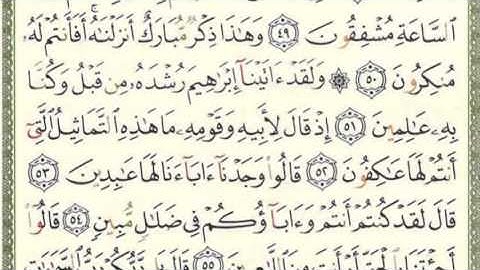 ٱلسَّاعَةِ مُشْفِقُونَ ٤٩ وَهَٰذَا ذِكْرٌ مُّبَارَكٌ أَنزَلْنَٰهُ ۚ أَفَأَنتُمْ لَهُۥ
مُنكِرُونَ ٥٠ ۞ وَلَقَدْ ءَاتَيْنَآ إِبْرَٰهِيمَ رُشْدَهُۥ مِن قَبْلُ وَكُنَّا
بِهِۦ عَٰلِمِينَ ٥١ إِذْ قَالَ لِأَبِيهِ وَقَوْمِهِۦ مَا هَٰذِهِ ٱلتَّمَاثِيلُ ٱلَّتِىٓ
أَنتُمْ لَهَا عَٰكِفُونَ ٥٢ قَالُوا۟ وَجَدْنَآ ءَابَآءَنَا لَهَا عَٰبِدِينَ ٥٣
قَالَ لَقَدْ كُنتُمْ أَنتُمْ وَءَابَآؤُكُمْ فِى ضَلَٰلٍ مُّبِينٍ ٥٤ قَالُوٓا۟
أَجِئْتَنَا بِٱلْحَقِّ أَمْ أَنتَ مِنَ ٱللَّٰعِبِينَ ٥٥ قَالَ بَل رَّبُّكُمْ رَبُّ ٱلسَّمَٰوَٰتِ